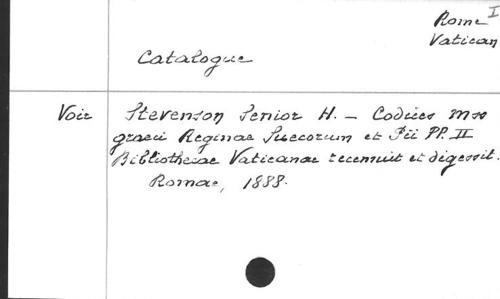 I
Rome
Vatican
Catalogue
Voir Stevenson Senior H. _ Codices Mss
graeci Reginae Suecorum et Pii PP. II
Bibliothecae Vaticanae recensuit et digessit.
Romae, 1888.